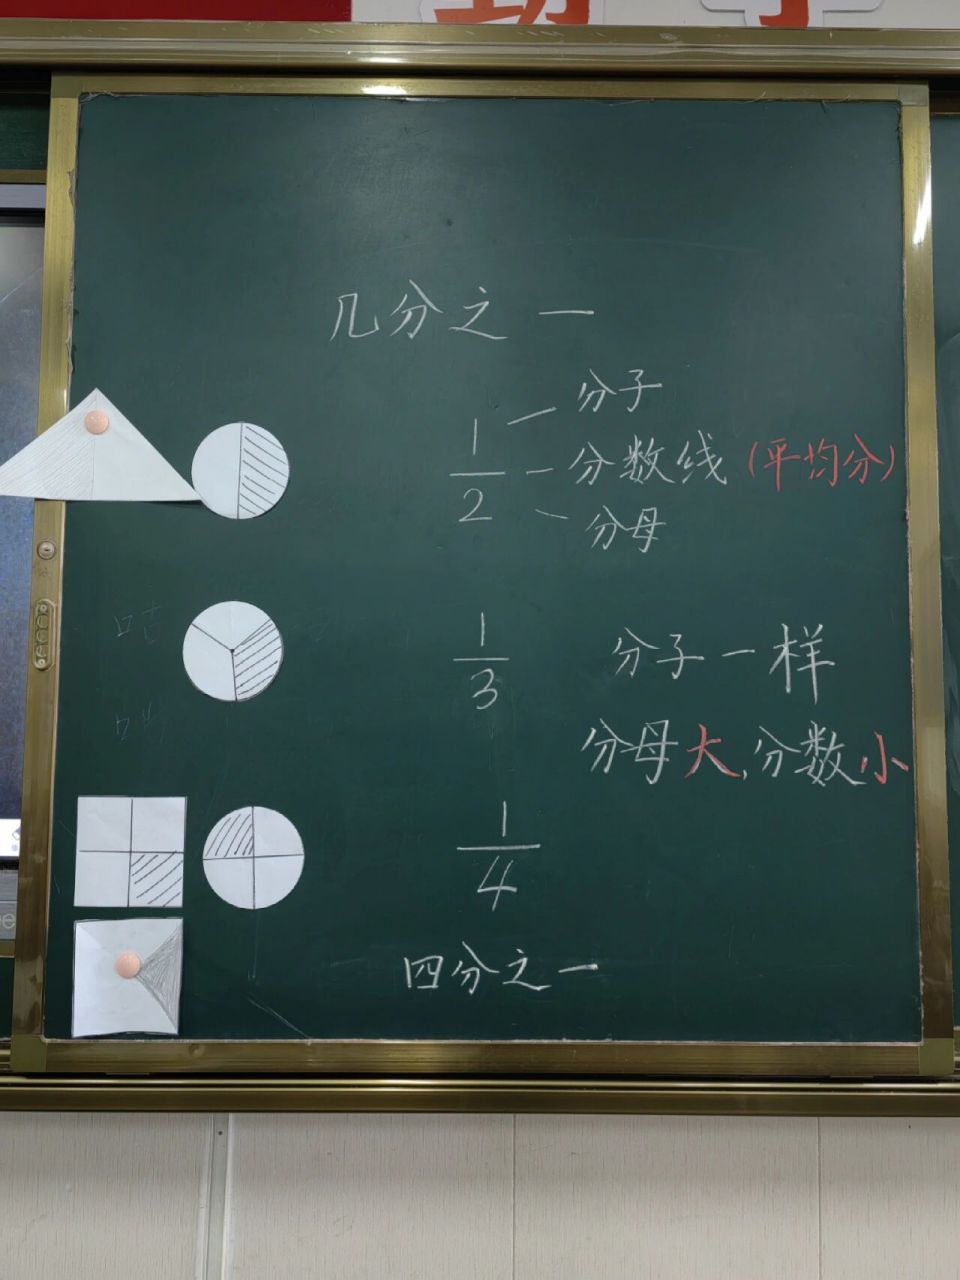 几分之一
分子
1
2
分数线(平均分)
分母
1
3
分子一样
分母大,分数小
1
4
四分之一